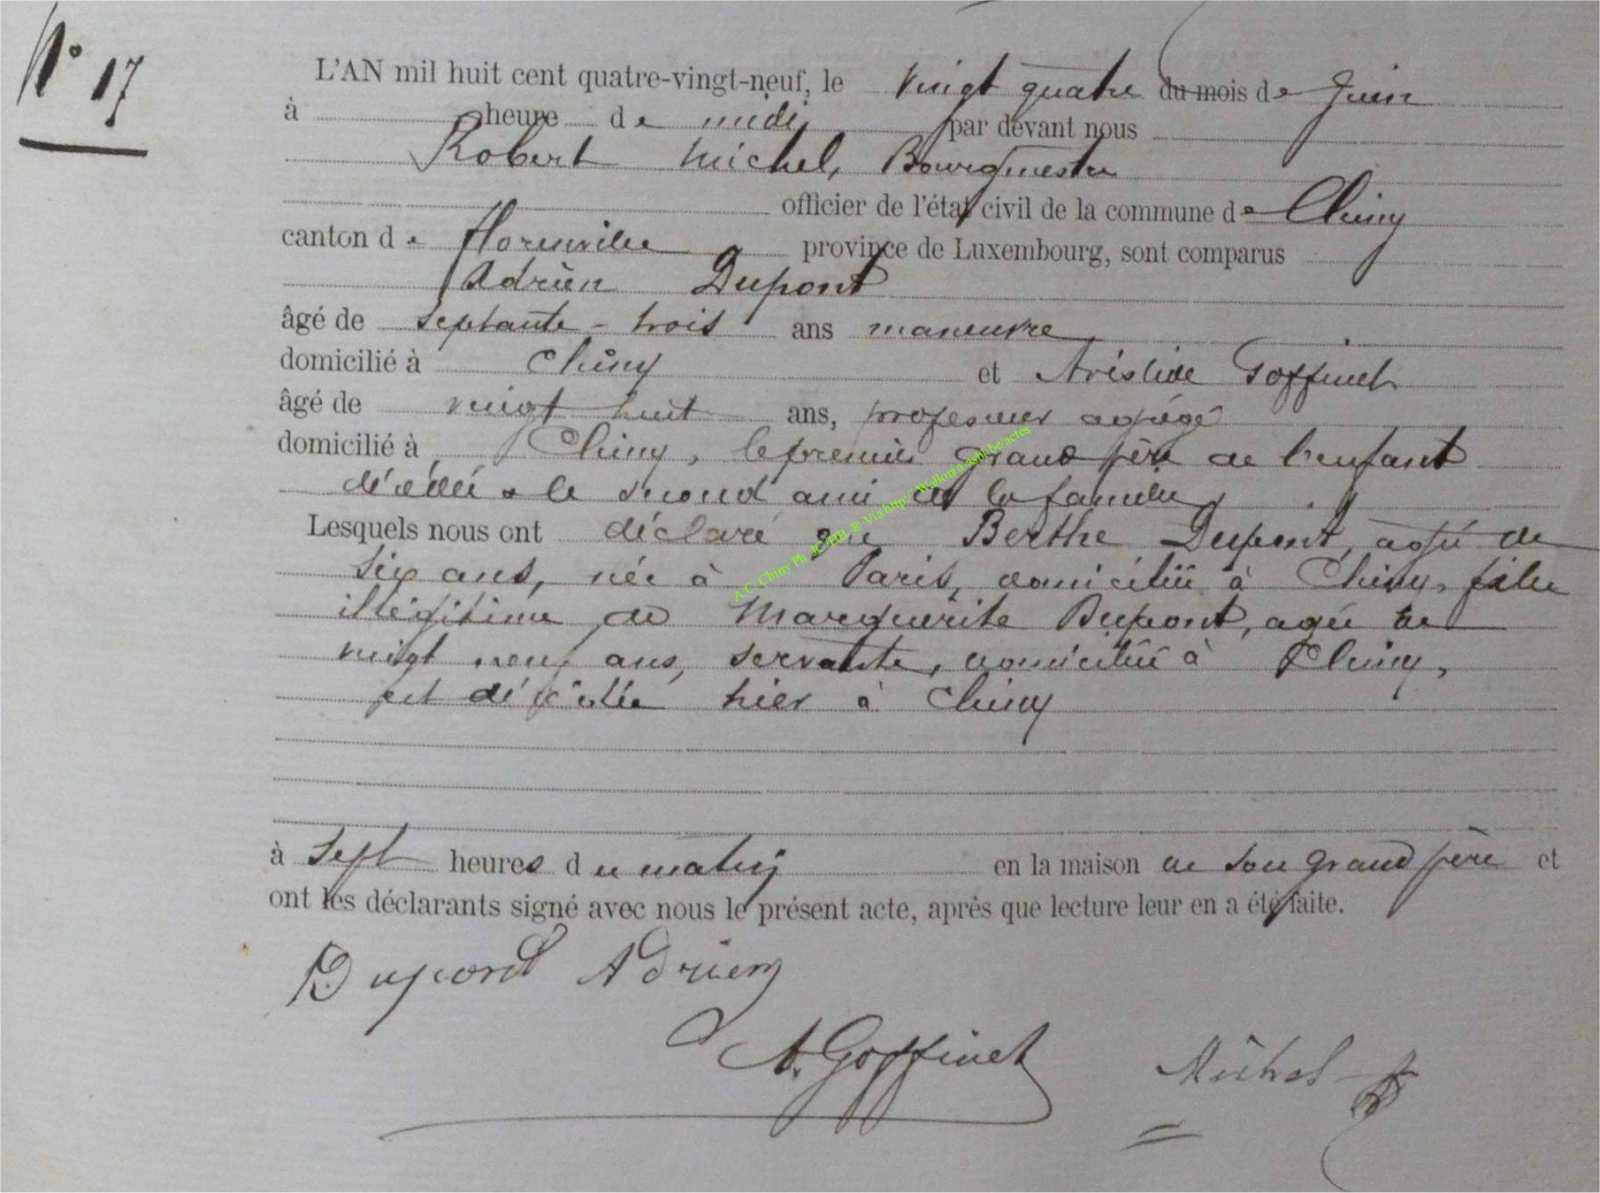 N° 17
L'AN mil huit cent quatre-vingt-neuf, le vingt quatre du mois de Juin
à heure de midi par devant nous
Robert Michel, Bourgmestre
officier de l'état civil de la commune de Chiny
canton de Florenville province de Luxembourg, sont comparus
Adrien Dupont
âgé de septante-trois ans manœuvre
domicilié à Chiny et Aristide Goffinet
âgé de vingt huit ans, professeur agrégé
domicilié à Chiny, le premier grand père de l'enfant
décédé & le second ami de la famille,
Lesquels nous ont déclaré que Berthe Dupont, agée de
six ans, née à Paris, domiciliée à Chiny, fille
illégitime de Marguerite Dupont, agée de
vingt neuf ans, servante, domiciliée à Chiny,
est décédée hier à Chiny
à sept heures du matin en la maison de son grand père et
ont les déclarants signé avec nous le présent acte, après que lecture leur en a été faite.
Dupont Adrien
A. Goffinet
Michel